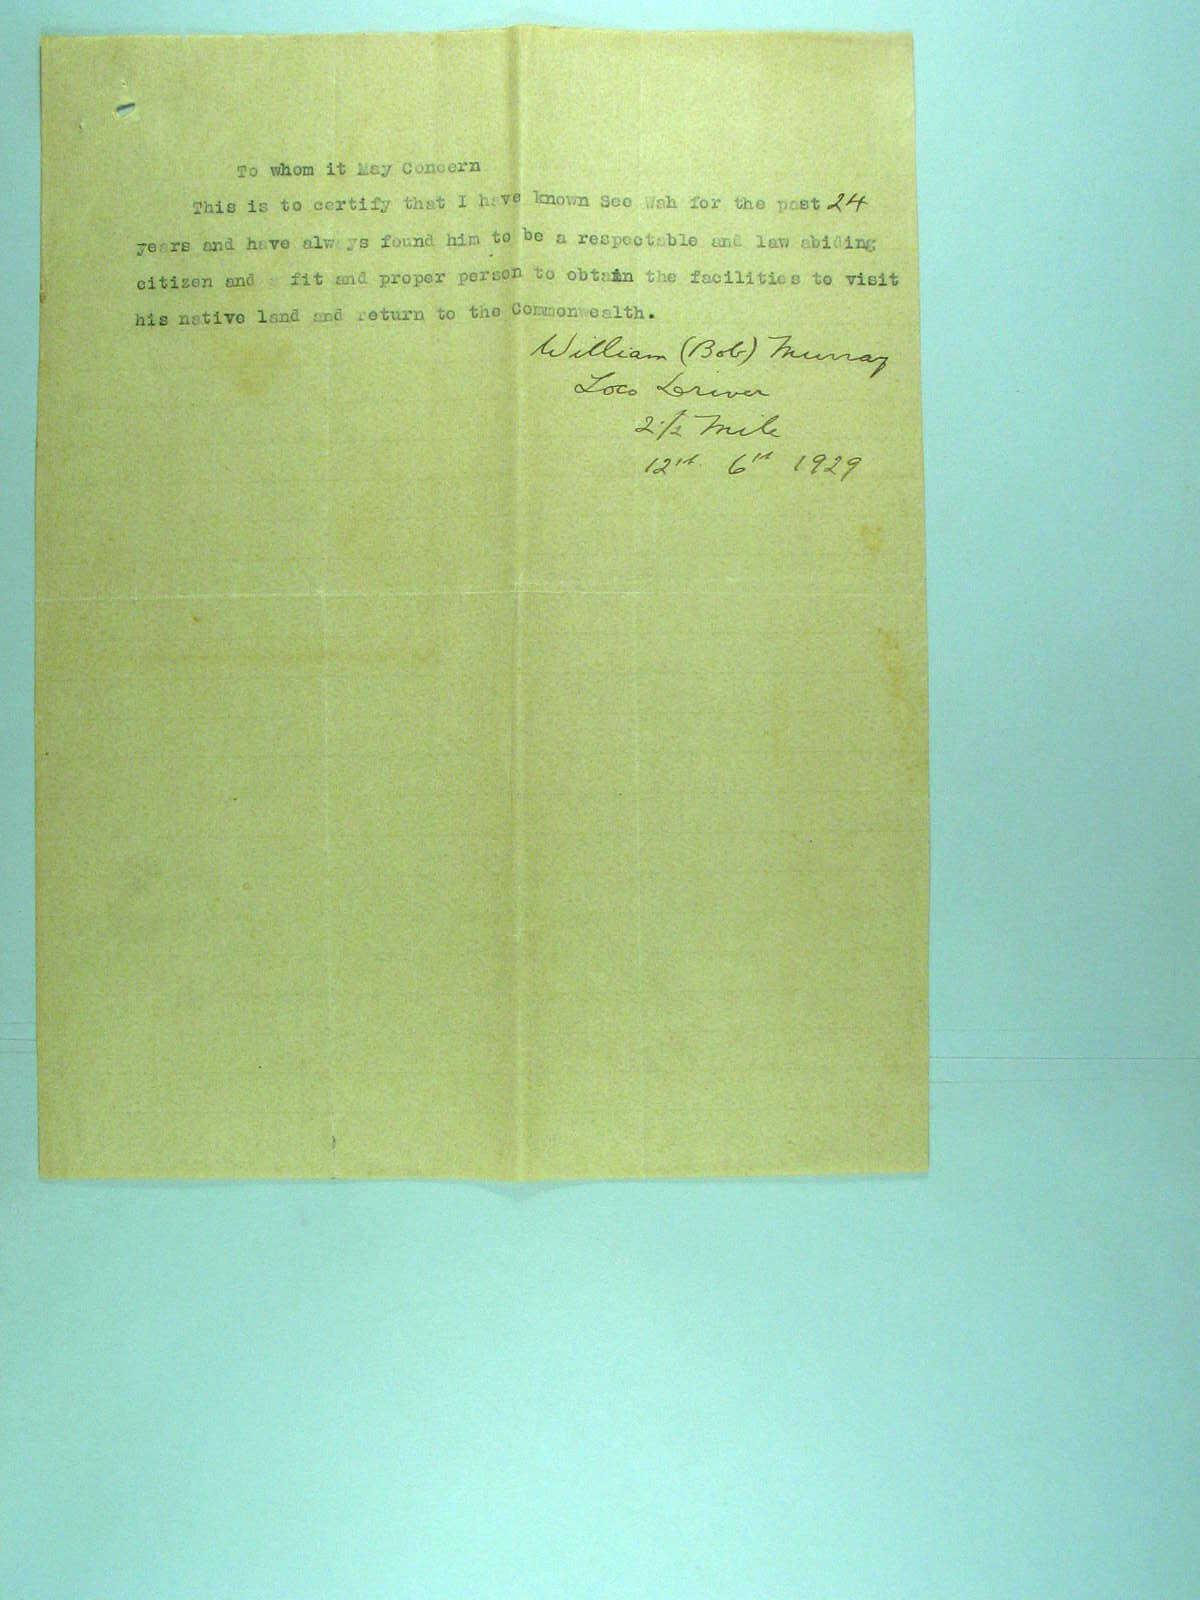 To whom it May Concern
This is to certify that I have known See Wah for the past 24
years and have always found him to be a respectable and law abiding
citizen and a fit and proper person to obtain the facilities to visit
his native land and return to the Commonwealth.
William (Bob) Murray
Loco Driver
2 1/2 Mile
12st 6st 1929